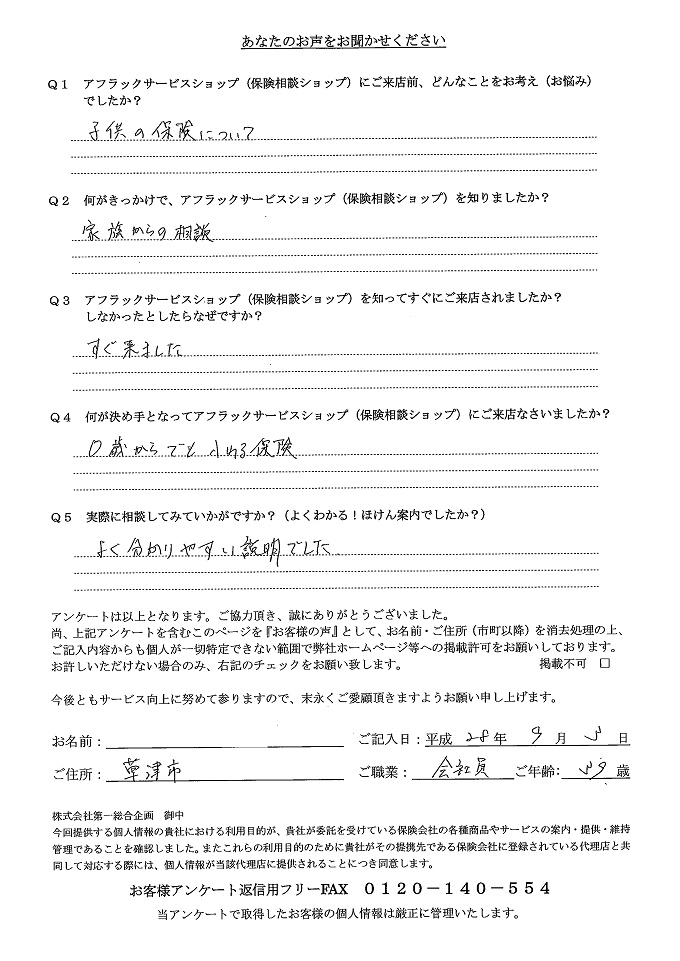 あなたのお声をお聞かせください
Q1 アフラックサービスショップ（保険相談ショップ）にご来店前、どんなことをお考え（お悩み）
でしたか？
子供の保険について
Q2 何がきっかけで、アフラックサービスショップ（保険相談ショップ）を知りましたか？
家族からの相談
Q3 アフラックサービスショップ（保険相談ショップ）を知ってすぐにご来店されましたか？
しなかったとしたらなぜですか？
すぐ来ました
Q4 何が決め手となってアフラックサービスショップ（保険相談ショップ）にご来店なさいましたか？
0歳からでも入れる保険
Q5 実際に相談してみていかがですか？（よくわかる！ほけん案内でしたか？）
よく分かりやすい説明でした
アンケートは以上となります。ご協力頂き、誠にありがとうございました。
尚、上記アンケートを含むこのページを『お客様の声』として、お名前・ご住所（市町以降）を消去処理の上、
ご記入内容からも個人が一切特定できない範囲で弊社ホームページ等への掲載許可をお願いしております。
お許しいただけない場合のみ、右記のチェックをお願い致します。 掲載不可 □
今後ともサービス向上に努めて参りますので、末永くご愛顧頂きますようお願い申し上げます。
お名前： ご記入日：平成 28年 9月 5日
ご住所： 草津市 ご職業： 会社員 ご年齢： 歳
株式会社第一総合企画 御中
今回提供する個人情報の貴社における利用目的が、貴社が委託を受けている保険会社の各種商品やサービスの案内・提供・維持
管理であることを確認しました。またこれらの利用目的のために貴社がその提携先である保険会社に登録されている代理店と共
同して対応する際には、個人情報が当該代理店に提供されることにつき同意します。
お客様アンケート返信用フリーFAX 0120－140－554
当アンケートで取得したお客様の個人情報は厳正に管理いたします。